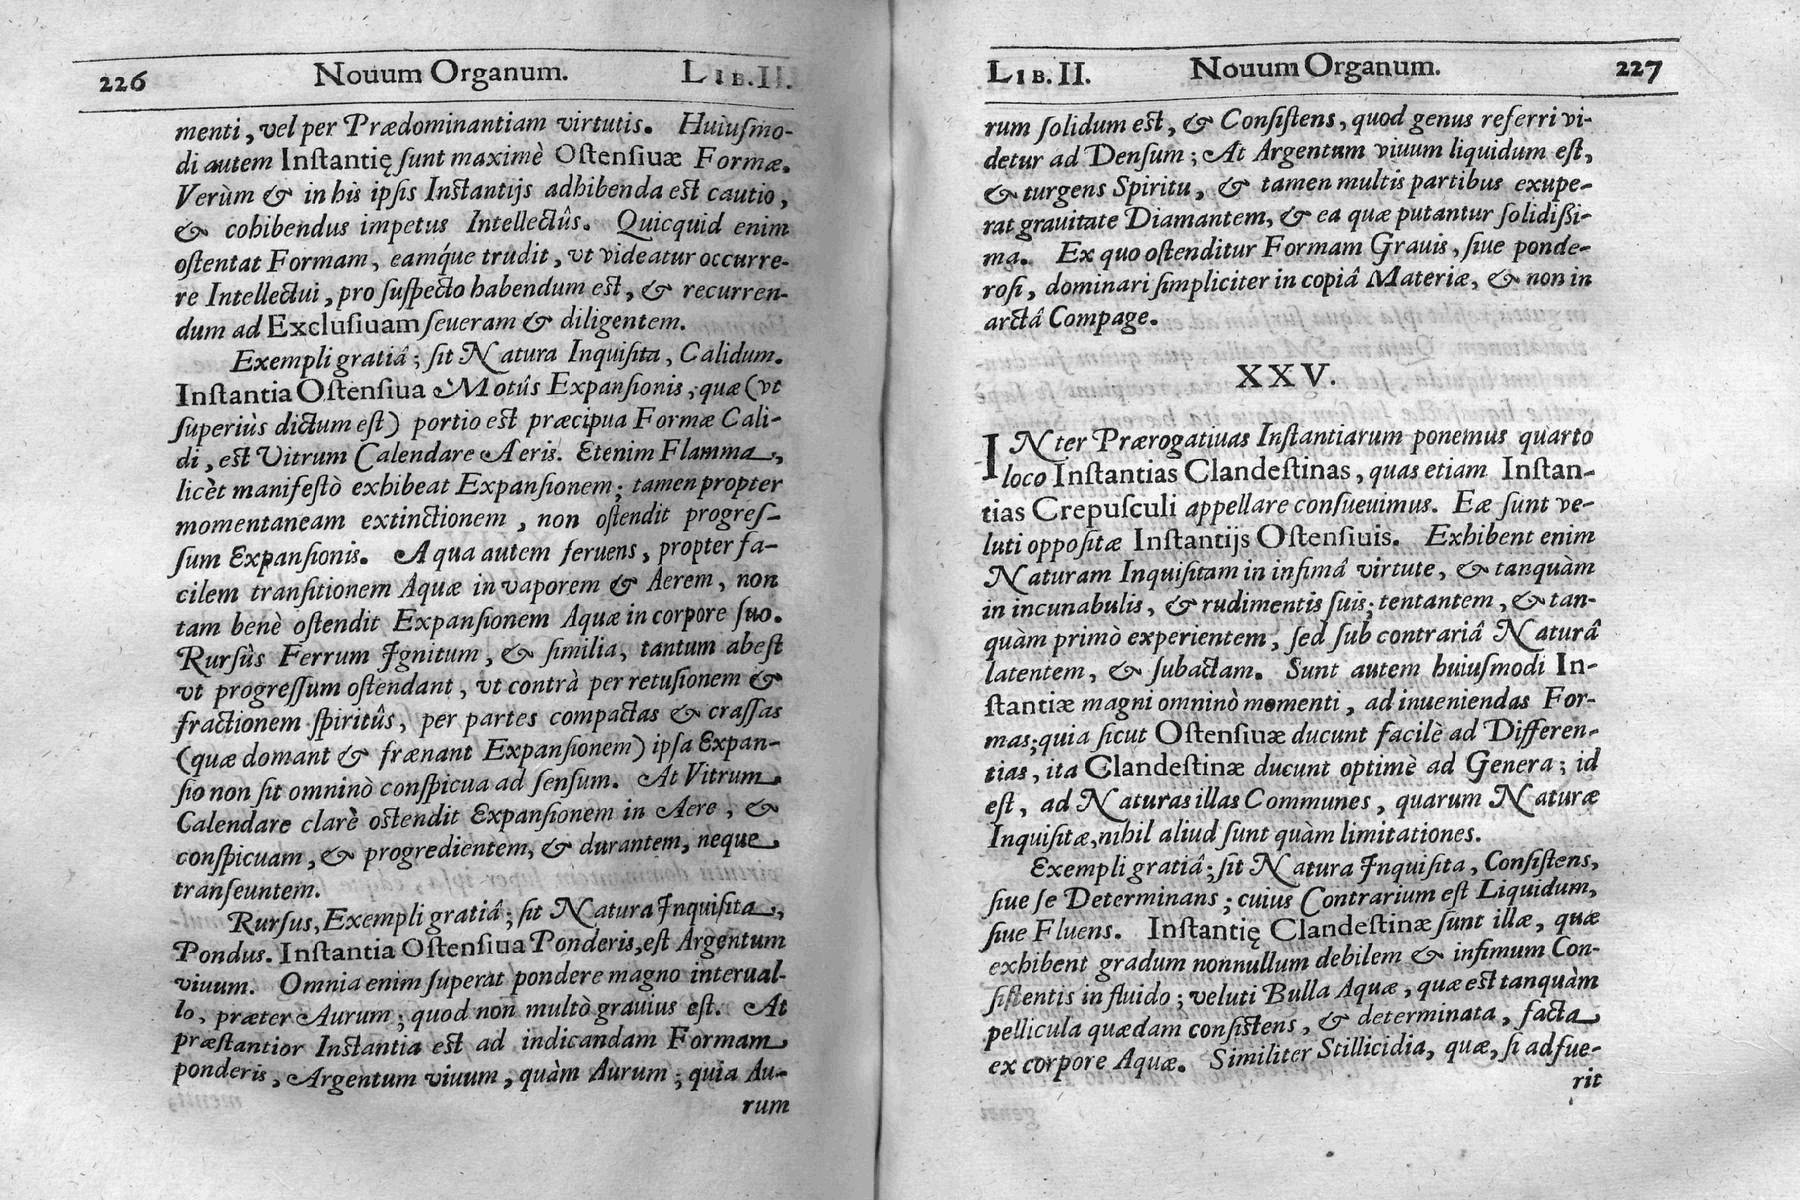 226 Nouum Organum. LIB. II.
menti, vel per Prædominantiam virtutis. Huiuſmo-
di autem Inſtantię ſunt maximè Oſtenſiuæ Formæ.
Verùm & in his ipſis Inſtantijs adhibenda eſt cautio,
& cohibendus impetus Intellectûs. Quicquid enim
oſtentat Formam, eamq́ue trudit, vt videatur occurre-
re Intellectui, pro ſuſpecto habendum eſt, & recurren-
dum ad Excluſiuam ſeueram & diligentem.
Exempli gratiâ; ſit Natura Inquiſita, Calidum.
Inſtantia Oſtenſiua Motûs Expanſionis, quæ (vt
ſuperiùs dictum eſt) portio eſt præcipua Formæ Cali-
di, eſt Vitrum Calendare Aeris. Etenim Flamma,
licèt manifeſtò exhibeat Expanſionem; tamen propter
momentaneam extinctionem, non oſtendit progreſ-
ſum Expanſionis. Aqua autem feruens, propter fa-
cilem tranſitionem Aquæ in vaporem & Aerem, non
tam benè oſtendit Expanſionem Aquæ in corpore ſuo.
Rurſûs Ferrum Ignitum, & ſimilia, tantum abeſt
vt progreſſum oſtendant, vt contrà per retuſionem &
fractionem ſpiritûs, per partes compactas & craſſas
(quæ domant & frænant Expanſionem) ipſa Expan-
ſio non ſit omninò conſpicua ad ſenſum. At Vitrum
Calendare clarè oſtendit Expanſionem in Aere, &
conſpicuam, & progredientem, & durantem, neque
tranſeuntem.
Rurſus, Exempli gratiâ; ſit Natura Inquiſita,
Pondus. Inſtantia Oſtenſiua Ponderis, eſt Argentum
viuum. Omnia enim ſuperat pondere magno interual-
lo, præter Aurum; quod non multò grauius eſt. At
præſtantior Inſtantia eſt ad indicandam Formam
ponderis, Argentum viuum, quàm Aurum; quia Au-
rum
LIB. II. Nouum Organum. 227
rum ſolidum eſt, & Conſiſtens, quod genus referri vi-
detur ad Denſum; At Argentum viuum liquidum eſt,
& turgens Spiritu, & tamen multis partibus exupe-
rat grauitate Diamantem, & ea quæ putantur ſolidißi-
ma. Ex quo oſtenditur Formam Grauis, ſiue ponde-
roſi, dominari ſimpliciter in copiâ Materiæ, & non in
arctâ Compage.
XXV.
INter Prærogatiuas Inſtantiarum ponemus quarto
loco Inſtantias Clandeſtinas, quas etiam Inſtan-
tias Crepuſculi appellare conſueuimus. Eæ ſunt ve-
luti oppoſitæ Inſtantijs Oſtenſiuis. Exhibent enim
Naturam Inquiſitam in infimâ virtute, & tanquàm
in incunabulis, & rudimentis ſuis; tentantem, & tan-
quàm primò experientem, ſed ſub contrariâ Naturâ
latentem, & ſubactam. Sunt autem huiuſmodi In-
ſtantiæ magni omninò momenti, ad inueniendas For-
mas; quia ſicut Oſtenſiuæ ducunt facilè ad Differen-
tias, ita Clandeſtinæ ducunt optimè ad Genera; id
eſt, ad Naturas illas Communes, quarum Naturæ
Inquiſitæ, nihil aliud ſunt quàm limitationes.
Exempli gratiâ; ſit Natura Inquiſita, Conſiſtens,
ſiue ſe Determinans; cuius Contrarium eſt Liquidum,
ſiue Fluens. Inſtantię Clandeſtinæ ſunt illæ, quæ
exhibent gradum nonnullum debilem & infimum Con-
ſiſtentis in fluido; veluti Bulla Aquæ, quæ eſt tanquàm
pellicula quædam conſiſtens, & determinata, facta
ex corpore Aquæ. Similiter Stillicidia, quæ, ſi adfue-
rit